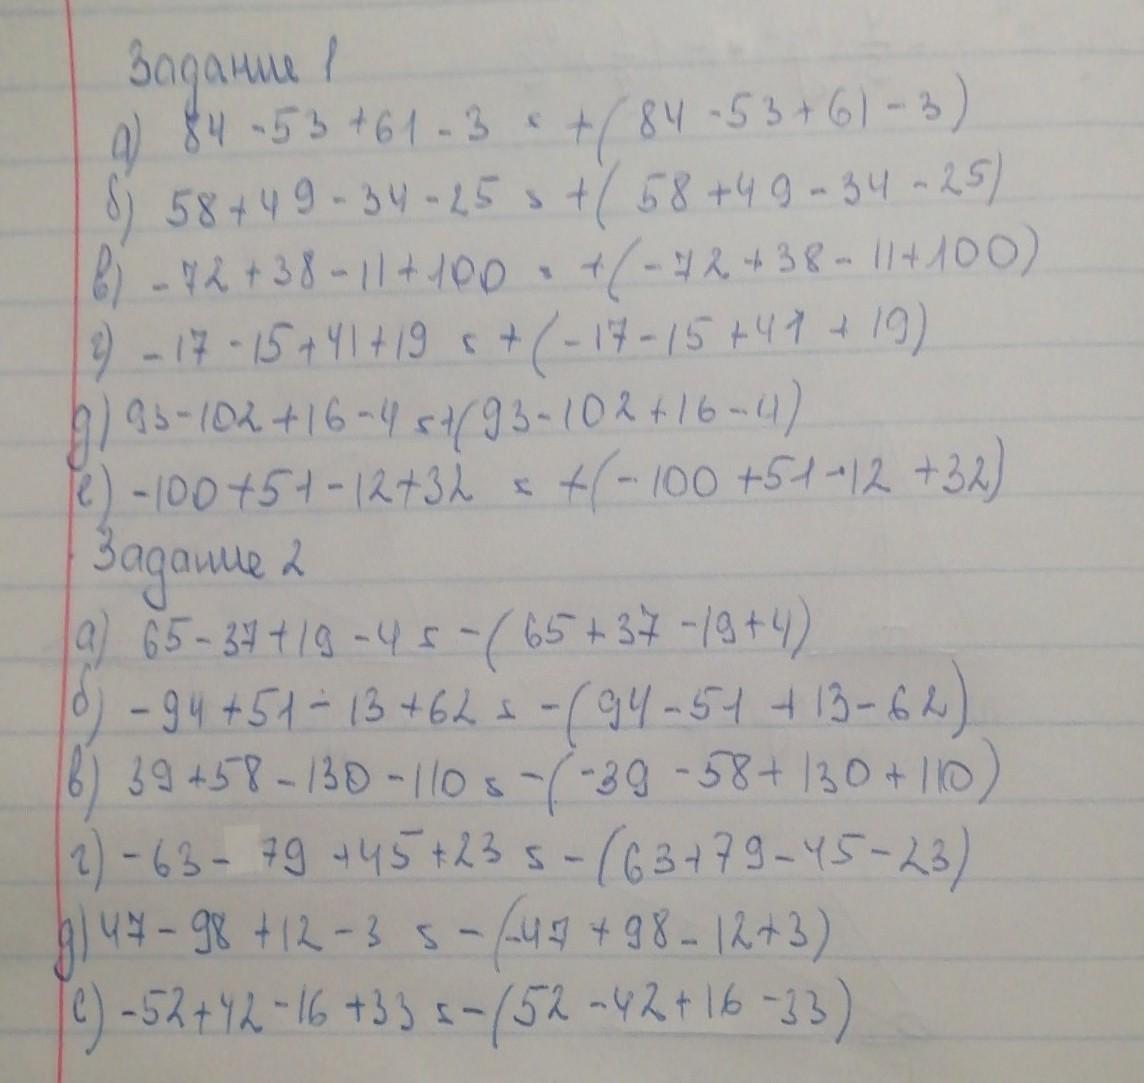 Задание 1
а) 84 - 53 + 61 - 3 = +(84 - 53 + 61 - 3)
б) 58 + 49 - 34 - 25 = +(58 + 49 - 34 - 25)
в) - 72 + 38 - 11 + 100 = +(- 72 + 38 - 11 + 100)
г) - 17 - 15 + 41 + 19 = +(- 17 - 15 + 41 + 19)
д) 93 - 102 + 16 - 4 = +(93 - 102 + 16 - 4)
е) - 100 + 51 - 12 + 32 = +(- 100 + 51 - 12 + 32)
Задание 2
а) 65 - 37 + 19 - 4 = -(65 + 37 - 19 + 4)
б) - 94 + 51 - 13 + 62 = -(94 - 51 + 13 - 62)
в) 39 + 58 - 130 - 110 = -(-39 - 58 + 130 + 110)
г) - 63 - 79 + 45 + 23 = -(63 + 79 - 45 - 23)
д) 47 - 98 + 12 - 3 = -(-47 + 98 - 12 + 3)
е) - 52 + 42 - 16 + 33 = -(52 - 42 + 16 - 33)